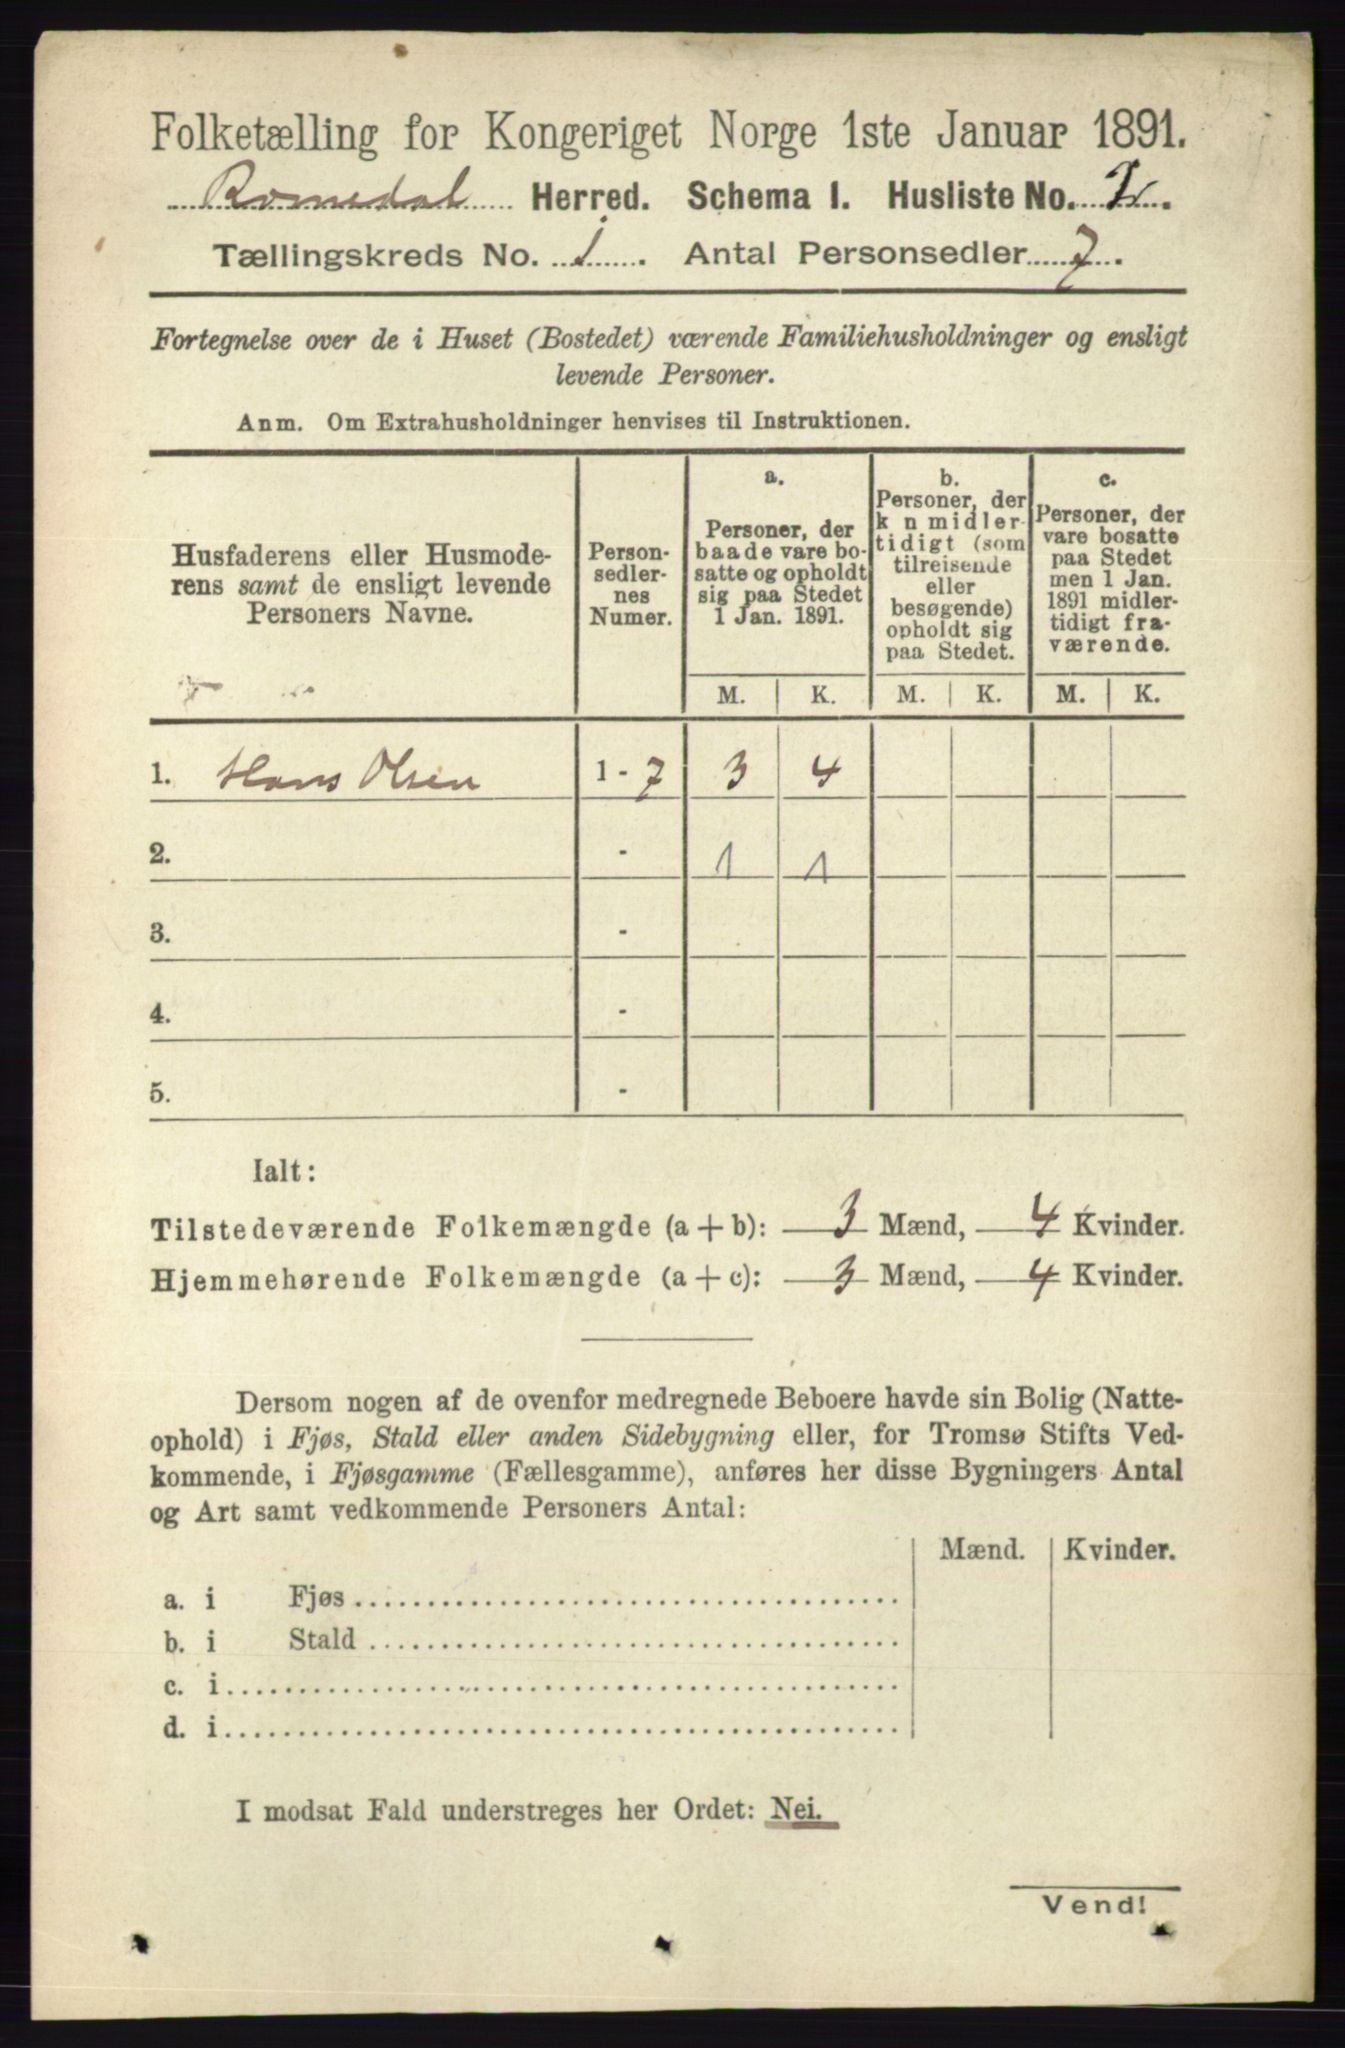 Folketælling for Kongeriget Norge 1ste Januar 1891.
Romedal Herred. Schema 1. Husliste No.
Tællingskreds No. 1. Antal Personsedler 7.
Fortegnelse over de i Huset (Bostedet) værende Familiehusholdninger og ensligt
levende Personer.
Anm. Om Extrahusholdninger henvises til Instruktionen.
Husfaderens eller Husmode-
rens samt de ensligt levende
Personers Navne.
Person-
sedler-
nes
Numer.
a.
Personer, der
baade vare bo-
satte og opholdt
sig paa Stedet
1 Jan. 1891.
b.
Personer, der
k n midler-
tidigt (som
tilreisende
eller
besøgende)
opholdt sig
paa Stedet.
c.
Personer, der
vare bosatte
paa Stedet
men 1 Jan.
1891 midler-
tidigt fra-
værende.
M. K. M. K. M. K.
1. Hans Olsen 1 - 7 3 4
2. - 1 1
3. -
4. -
5. -
Ialt:
Tilstedeværende Folkemængde (a + b): 3 Mænd, 4 Kvinder.
Hjemmehørende Folkemængde (a + c): 3 Mænd, 4 Kvinder.
Dersom nogen af de ovenfor medregnede Beboere havde sin Bolig (Natte-
ophold) i Fjøs, Stald eller anden Sidebygning eller, for Tromsø Stifts Ved-
kommende, i Fjøsgamme (Fællesgamme), anføres her disse Bygningers Antal
og Art samt vedkommende Personers Antal:
Mænd. Kvinder.
a. i Fjøs
b. i Stald
c. i
d. i
I modsat Fald understreges her Ordet: Nei.
Vend!